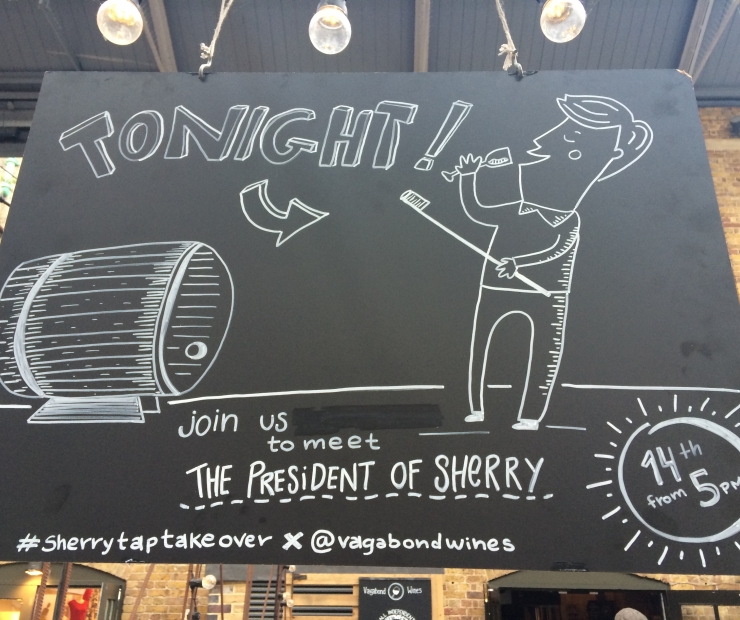 TONIGHT!
join us
to meet
THE PRESIDENT OF SHERRY
14th
from 5PM
#Sherrytaptakeover x @vagabondwines
Vagabond Wines
ALL INDEPENDENT